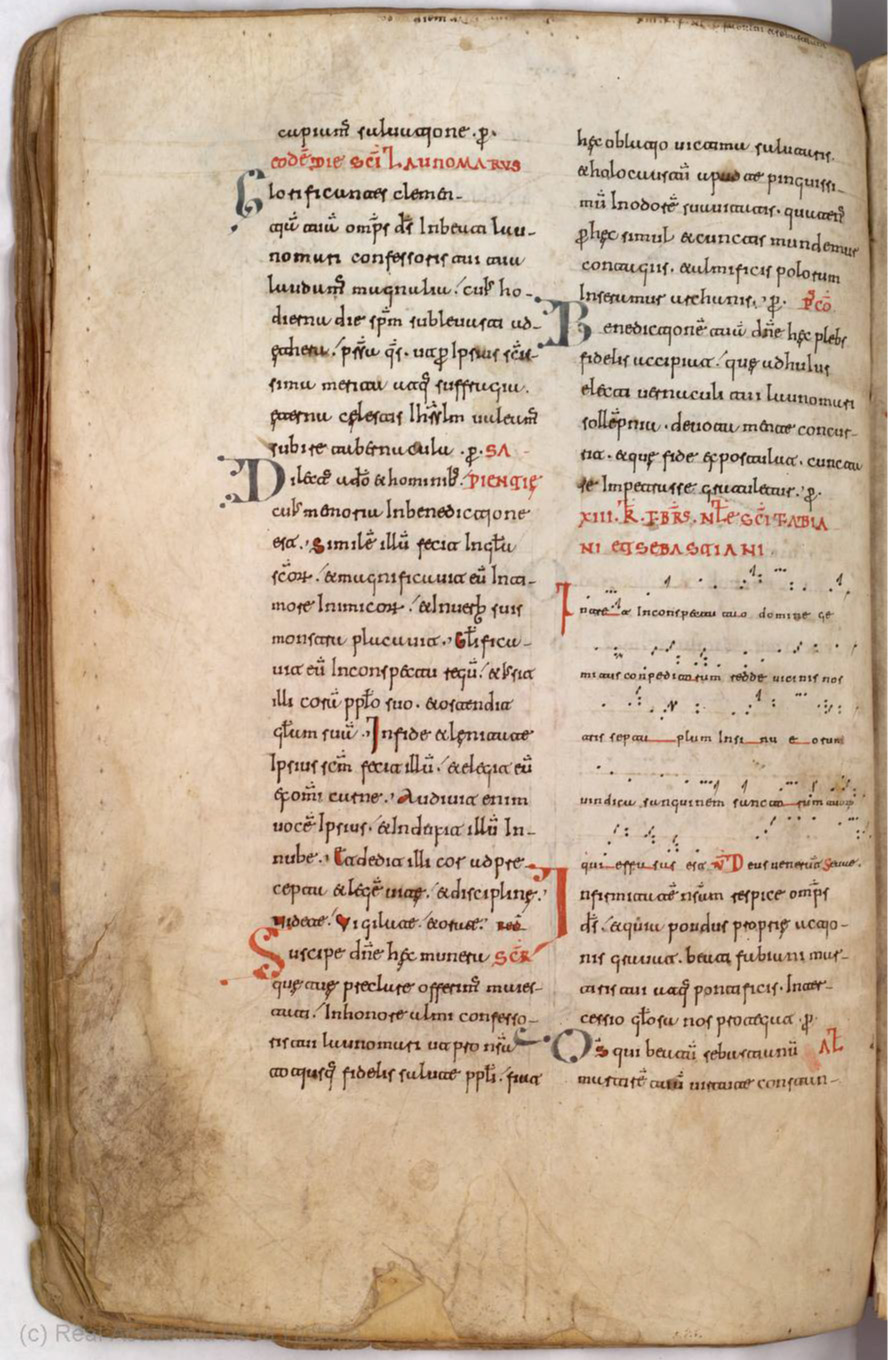 capium̃ saluatione · ꝓ·
EODẼ DIE SC̃I LAUNOMARUS
Glorificantes clemen-
tiã tuã omp̃s ds̃ In beati lau-
nomari confessoris tui tua
laudum̃ magnalia / cuiꝰ ho-
dierna die sp̃m subleuasti ad
ętherea / p̃sta q̃s · ut ꝓ Ipsius sc̃is-
sima merita atq̃ suffragia ·
ęterna cęlestis Ihr̃lm ualeam̃
subire tabernacula · ꝓ· SA
Dilect̃ a dõ & hominibꝰ · PIENTIĘ
cuiꝰ memoria In benedictione
est · Similẽ illũ fecit In gl̃a
sc̃oꝝ / & magnificauit eũ In ti-
more Inimicoꝝ / & In uerbis suis
monstra placauit · Gl̃ifica-
uit eũ In conspectu regũ / & iussit
illi corã pp̃lo suo · & ostendit
gl̃am suã · In fide & lenitate
Ipsius sc̃m fecit illũ / & elegit eũ
ex omi carne · Audiuit enim
uocẽ Ipsius · & Induxit illũ In
nube · Et dedit illi cor ad pre-
cepta & legẽ uitę / & disciplinę ·
uideate / Vigilate / & orate ·
Suscipe dñe hęc munera SCR̃
que tuę preclare offerim̃ maies-
tati / In honore almi confesso-
ris tui launomari ut pro nr̃a
atq̃ fidelis saluate pp̃li / fiat
hęc oblatio uictima salutaris ·
& holocaustũ apud te pinguissi-
mũ In odorẽ suauitatis · quatenꝰ
ꝓ hęc simul & cunctis mundemur
contagiis · & almificis polorum
Inseramur archanis · ꝓ· P̃ CÕ
Benedictionẽ tuã dñe hęc plebs
fidelis accipiat / quę ad huius
electi uernaculi tui launomari
sollẽpnia · deuota mente concur-
rit · & quę fide expostulat · cuncta
se Impetrasse gratuletur · ꝓ·
XIII · K̃ · FBR̃S · NL̃E SC̃I FABIA
NI ET SEBASTIANI
Intret In conspectu tuo domine ge
mitus conpeditorum redde uicinis nos
tris septu plum In si nu e orum
uindica sanguinem sanctorum tuorũ
qui effusus est Ṽ Deus uenerũt gentes ·
Infirmitatẽ nr̃am respice omp̃s
ds̃ / & quia pondus proprię actio-
nis grauat · beati fabiani mar-
tiris tui atq̃ pontificis · Inter-
cessio gl̃osa nos protegat · ꝓ
Ds̃ qui beatũ sebastianũ AL̃
martirẽ tuũ uirtute constan-